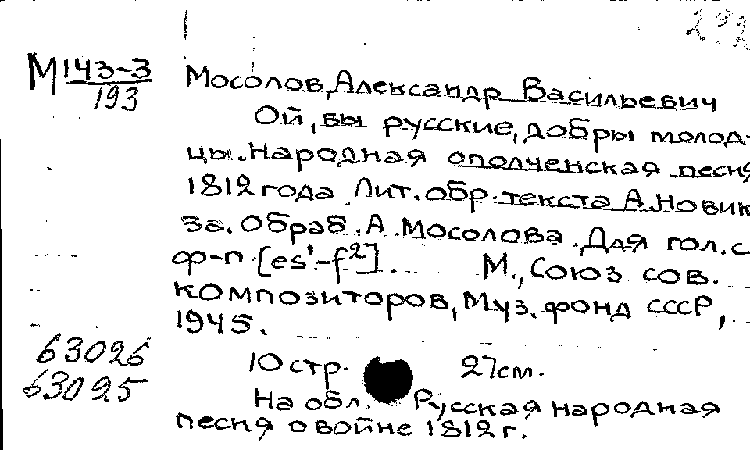 292
М 143-3
193
Мосолов, Александр Васильевич
Ой, вы русские, добры молод-
цы. Народная ополченская песня
1812 года. Лит. обр. текста А. Новик
за. Обраб. А. Мосолова. Для гол. с
ф-п. [es'-f²]. М., Союз сов.
композиторов, Муз. фонд СССР,
1945.
63026
63025
10 стр. 27 см.
На обл. Русская народная
песня о войне 1812 г.